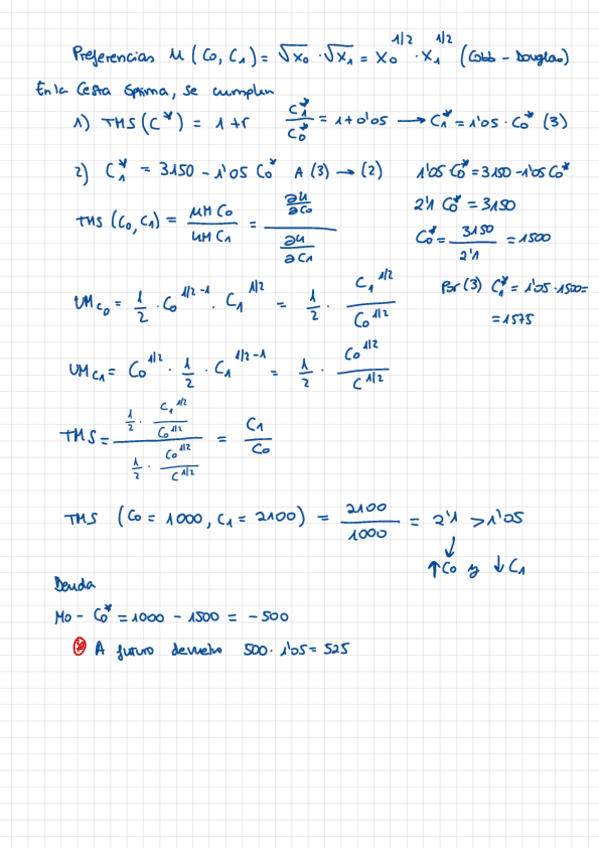 Preferencias U (C0, C1) = √X0 · √X1 = X0^1/2 · X1^1/2 (Cobb - Douglas)
En la Cesta óptima, se cumplen
1) TMS (C*) = 1+r    C1*/C0* = 1+0'05 → C1* = 1'05 · C0* (3)
2) C1* = 3150 - 1'05 C0*   A (3) → (2)   1'05 C0* = 3150 - 1'05 C0*
2'1 C0* = 3150
TMS (C0, C1) = UM C0 / UM C1 = (∂U/∂C0) / (∂U/∂C1)
C0* = 3150/2'1 = 1500
UM C0 = 1/2 · C0^1/2-1 · C1^1/2 = 1/2 · C1^1/2 / C0^1/2
Por (3) C1* = 1'05 · 1500 =
= 1575
UM C1 = C0^1/2 · 1/2 · C1^1/2-1 = 1/2 · C0^1/2 / C^1/2
TMS = (1/2 · C1^1/2 / C0^1/2) / (1/2 · C0^1/2 / C^1/2) = C1/C0
TMS (C0 = 1000, C1 = 2100) = 2100/1000 = 2'1 > 1'05
↓
↑C0 y ↓C1
Deuda
M0 - C0* = 1000 - 1500 = -500
A futuro devuelvo 500 · 1'05 = 525